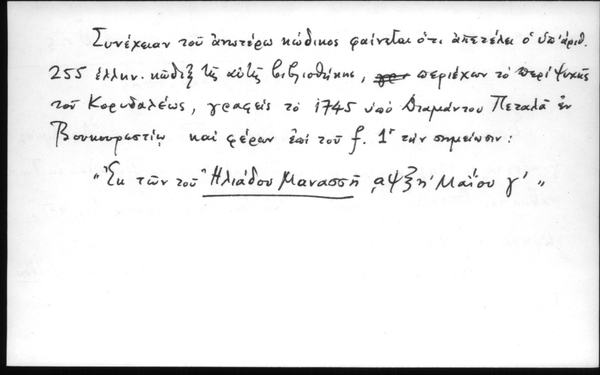 Συνέχειαν τοῦ ἀνωτέρω κώδικος φαίνεται ὅτι ἀπετέλει ὁ ὑπ' ἀριθ.
255 ἑλλην. κῶδιξ τῆς αὐτῆς βιβλιοθήκης, περιέχων τὸ περὶ ψυχῆς
τοῦ Κορυδαλέως, γραφεὶς τὸ 1745 ὑπὸ Διαμάντου Πεταλᾶ ἐν
Βουκουρεστίῳ καὶ φέρων ἐπὶ τοῦ f. 1r τὴν σημείωσιν:
"Ἐκ τῶν τοῦ Ἠλιάδου Μανασσῆ ͵αψξη' Μαΐου γ'"